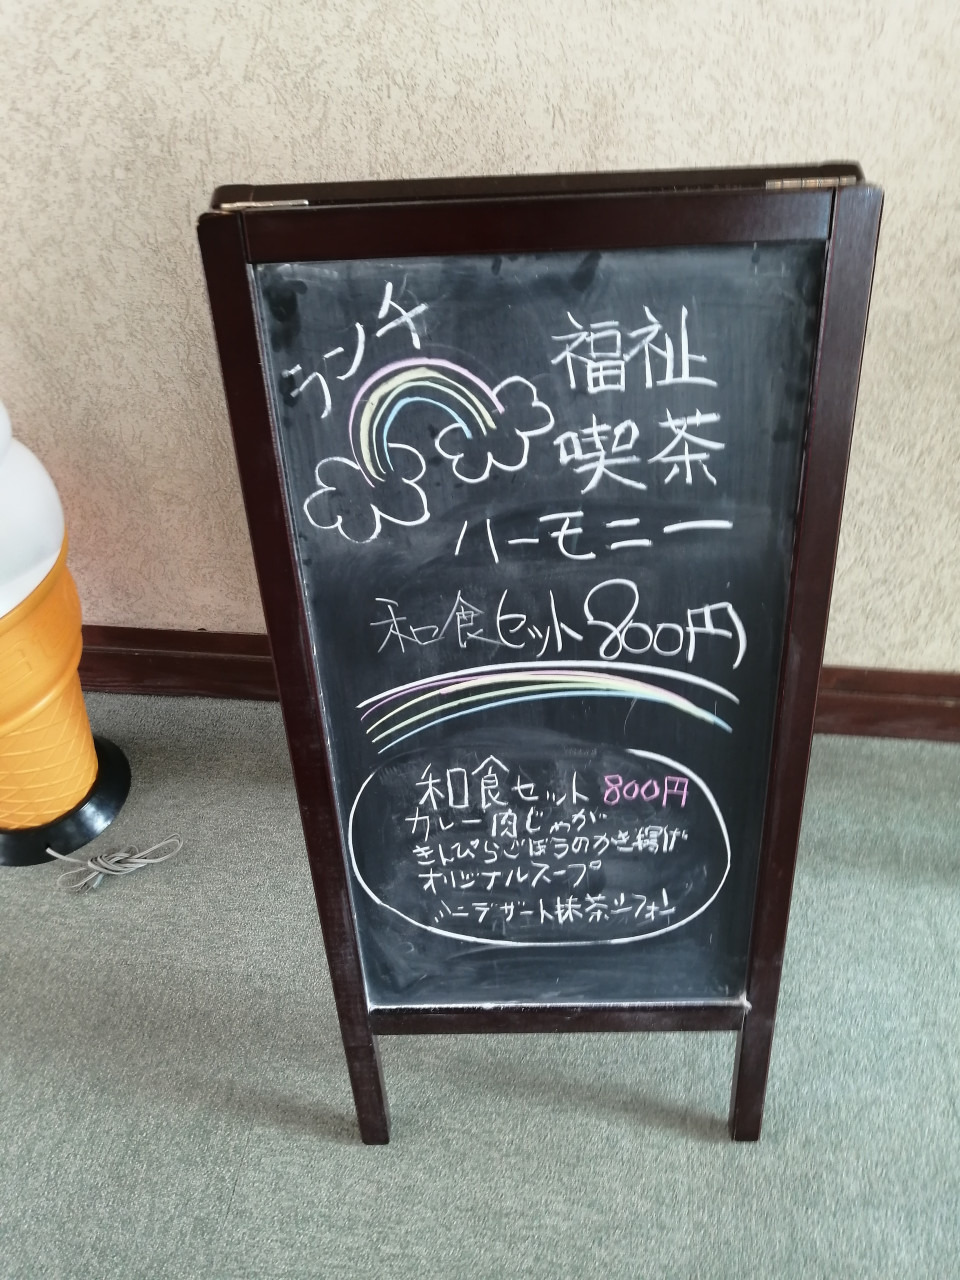 ランチ
福祉
喫茶
ハーモニー
和食セット800円
和食セット 800円
カレー肉じゃが
きんぴらごぼうのかき揚げ
オリジナルスープ
ミニデザート抹茶シフォン